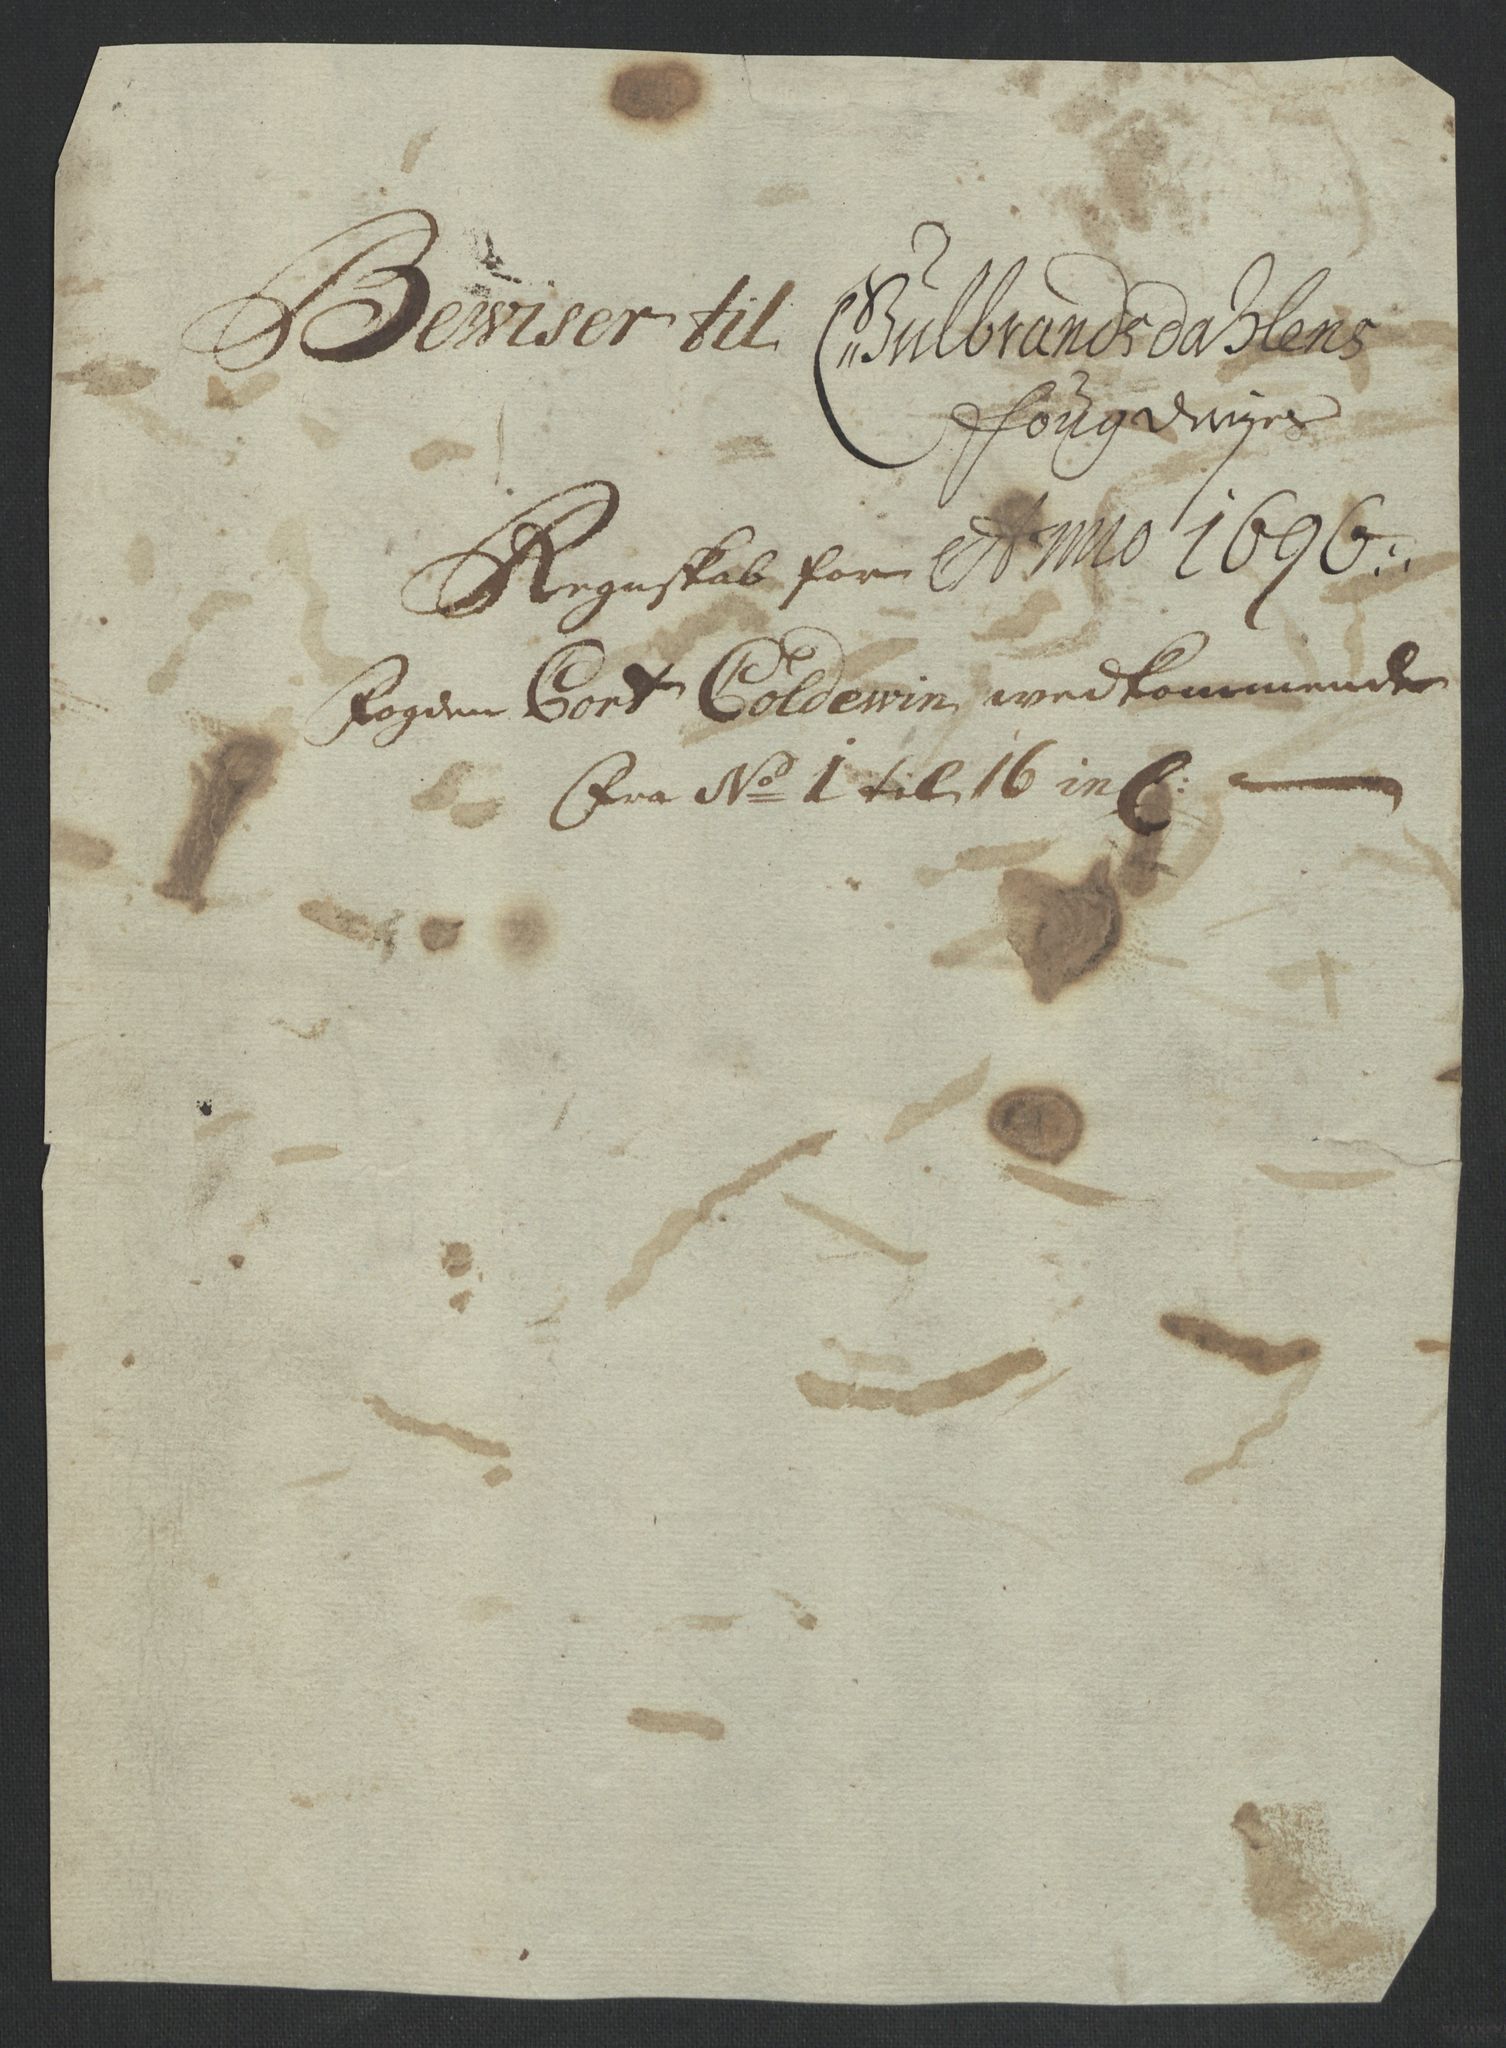 Bewiser til Gulbrandsdahlens
fougderijes
Regnskab for Anno 1696:
fogden Cort Coldewin, wedkommende
Fra No 1 til 16 incl: